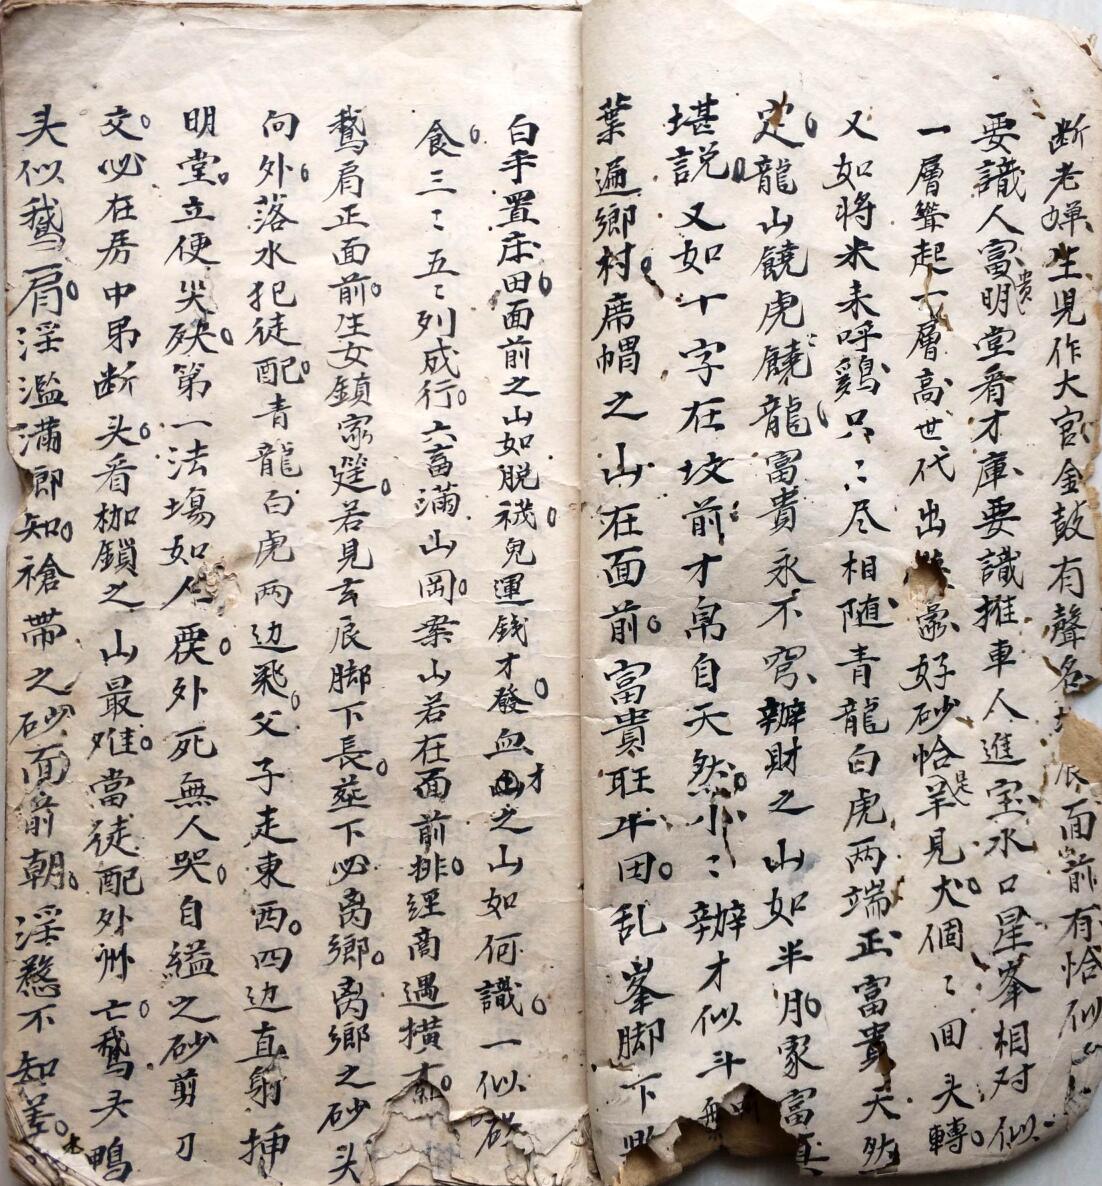 断老婵生見作大官金鼓有聲名 面前有恰似
要識人富貴明堂看才庫要識推車人進宝水口星峯相对似
一層聳起一層高世代出 豪好砂恰是羊見犬個〻回头轉
又如将米来呼鷄只〻尽相随青龍白虎两端正富貴天然
定龍山饒虎〻饒龍富貴永不窮辦財之山如半月家富
堪説又如十字在坟前才帛自天然小〻辦才似斗
葉遍鄉村席帽之山在面前富貴旺牛田乱峯脚下
白手置庄田面前之山如脱襪児運錢才發血才之山如何識一似
食三〻五〻列成行六畜滿山岡案山若在面前排經商遇横
鵞肩正面前生女鎖家筵若見玄辰脚下長莖下必离鄉离鄉之砂头
向外落水犯徒配青龍白虎两边飛父子走東西四边直射挿
明堂立便災殃第一法場如 戻外死無人哭自縊之砂剪刀
交必在房中弟断头看枷鎖之山最难當徒配外州亡鵞头鴨
头似鵞肩淫濫滿郎知裙带之砂面前朝淫 不知羞